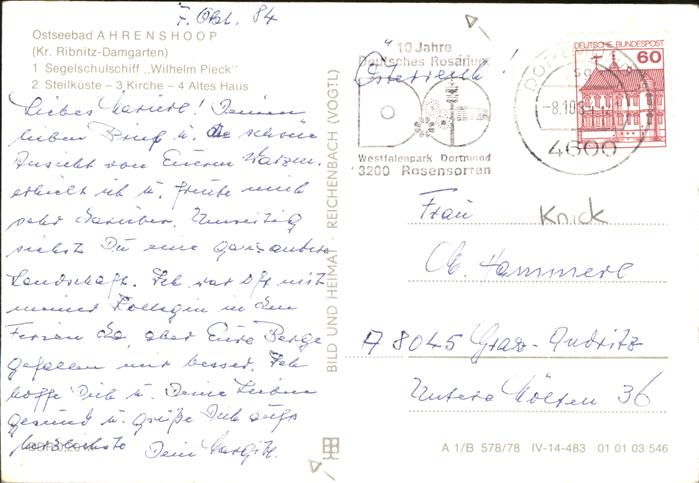 7. Okt. 84
Ostseebad AHRENSHOOP
(Kr. Ribnitz-Damgarten)
1 Segelschulschiff „Wilhelm Pieck"
2 Steilküste – 3 Kirche – 4 Altes Haus
Liebes Marierl! Deinen
lieben Brief u. die schöne
Ansicht von Eurem
erhielt ich u. freute mich
sehr darüber. Umseitig
siehst Du eine ganz andere
Landschaft. Ich war oft mit
meiner Kollegin in den
Ferien da, aber Eure Berge
gefallen mir besser. Ich
hoffe Dich u. Deine Lieben
gesund u. grüße Dich aufs
herzlichste Dein
BILD UND HEIMAT · REICHENBACH (VOGTL)
Österreich!
10 Jahre
Deutsches Rosarium
Westfalenpark Dortmund
3200 Rosensorten
DORTMUND
-8.10.84
4600
DEUTSCHE BUNDESPOST
60
Frau
Knick
Ch. Hammerl
A 8045 Graz-Andritz
Untere Mölten 36
A 1/B 578/78 IV-14-483 01 01 03 546